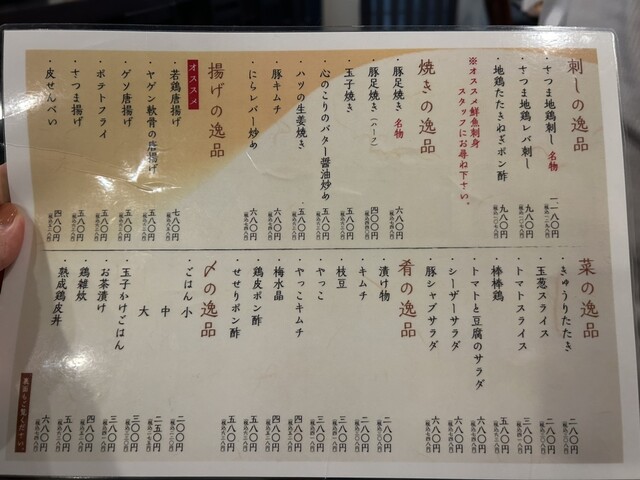 刺しの逸品
・さつま地鶏刺し 名物 一一八〇円
・さつま地鶏レバ刺し 九八〇円
・地鶏たたきねぎポン酢 九八〇円
※オススメ鮮魚刺身
スタッフにお尋ね下さい。
焼きの逸品
・豚足焼き 名物 六八〇円
・豚足焼き(ハーフ) 四〇〇円
・玉子焼き 五八〇円
・心のこりのバター醤油炒め 五八〇円
・ハツの生姜焼き 五八〇円
・豚キムチ 六八〇円
・にらレバー炒め 六八〇円
揚げの逸品
オススメ
・若鶏唐揚げ 七八〇円
・ヤゲン軟骨の唐揚げ 五八〇円
・ゲソ唐揚げ 五八〇円
・ポテトフライ 五八〇円
・さつま揚げ 五八〇円
・皮せんべい 四八〇円
菜の逸品
・きゅうりたたき 二八〇円
・玉葱スライス 二八〇円
・トマトスライス 三八〇円
・棒棒鶏 五八〇円
・トマトと豆腐のサラダ 六八〇円
・シーザーサラダ 六八〇円
・豚シャブサラダ 六八〇円
肴の逸品
・漬け物 二八〇円
・キムチ 二八〇円
・枝豆 三八〇円
・やっこ 三八〇円
・やっこキムチ 四八〇円
・梅水晶 四八〇円
・鶏皮ポン酢 四八〇円
・せせりポン酢 五八〇円
〆の逸品
・ごはん 小 二〇〇円
中 二五〇円
大 三〇〇円
・玉子かけごはん 三八〇円
・お茶漬け 四八〇円
・鶏雑炊 五八〇円
・熟成鶏皮丼 六八〇円
裏面もご覧ください。